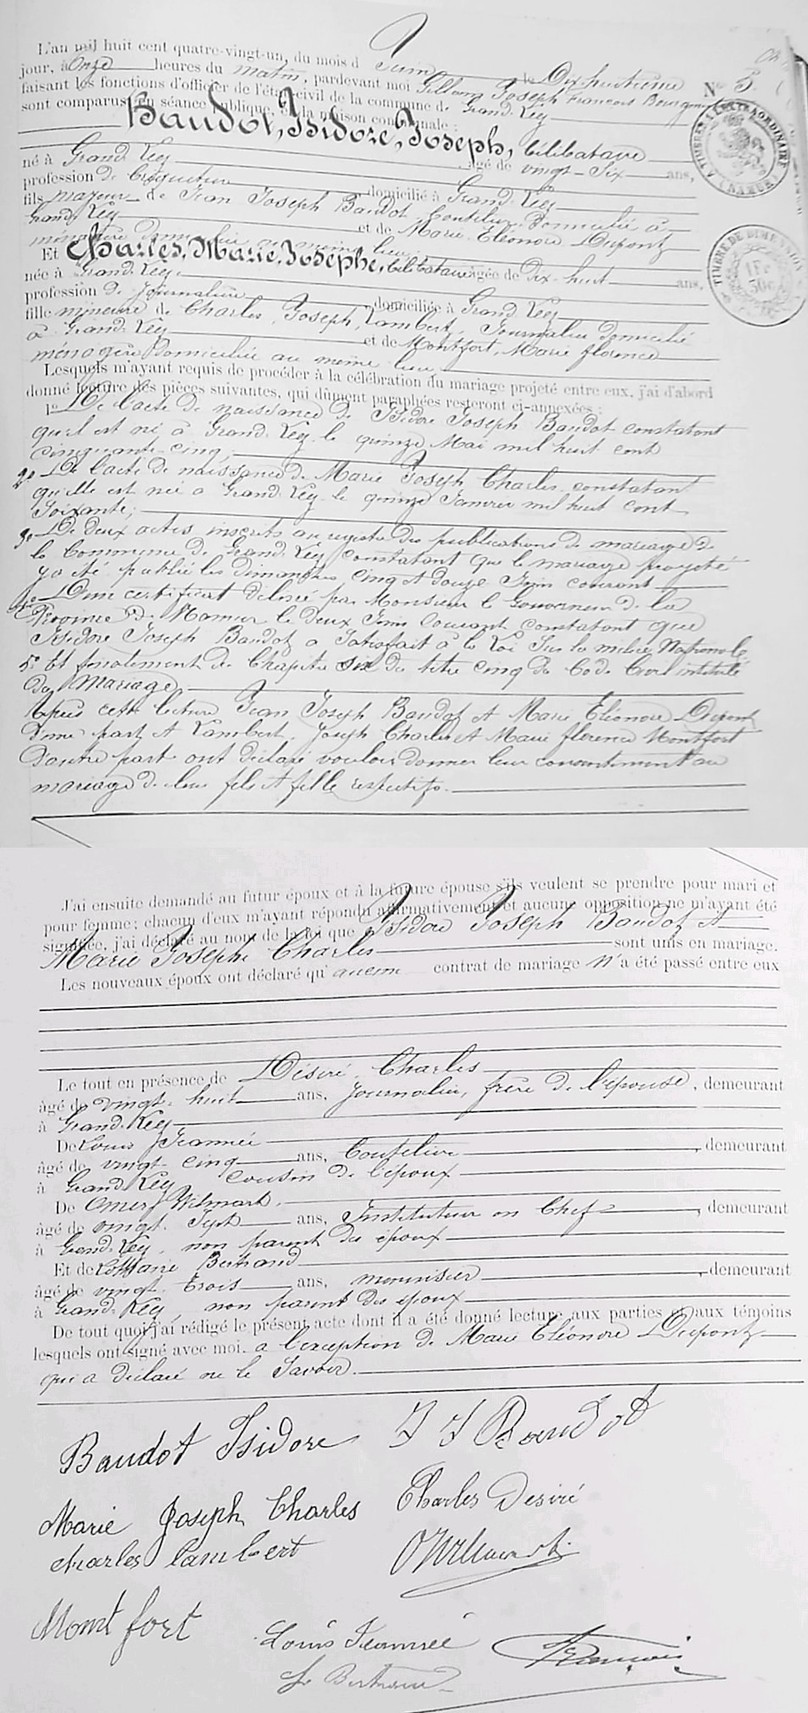 L'an mil huit cent quatre-vingt-un, du mois d Juin le Dix huitième
jour, à Onze heures du matin, pardevant moi Joseph François
faisant les fonctions d'officier de l'état civil de la commune de Grand-Leez N° 5
sont comparus en séance publique à la maison communale :
Baudot, Isidore, Joseph, célibataire
né à Grand Leez âgé de vingt-six ans,
profession de domicilié à Grand Leez
fils majeur de Jean Joseph Baudot, domicilié à
Grand Leez et de Marie Eléonore Dupont
ménagère domiciliée au même lieu
Et Charles, Marie, Josephe, célibataire âgée de Dix-huit ans,
née à Grand Leez
profession de Journalière domiciliée à Grand Leez
fille mineure de Charles, Joseph, Lambert, Journalier domicilié
à Grand Leez et de Montfort, Marie florence
ménagère domiciliée au même lieu
Lesquels m'ayant requis de procéder à la célébration du mariage projeté entre eux, j'ai d'abord
donné lecture des pièces suivantes, qui dûment paraphées resteront ci-annexées :
1° De l'acte de naissance de Isidore Joseph Baudot constatant
qu'il est né à Grand-Leez le quinze Mai mil huit cent
cinquante-cinq,
2° De l'acte de naissance de Marie Joseph Charles constatant
qu'elle est née à Grand Leez le quinze Janvier mil huit cent
Soixante;
3° De deux actes inscrits au registre des publications de mariage de
la Commune de Grand-Leez constatant que le mariage projeté
y a été publié les dimanches cinq et douze Juin courant
4° D'un certificat délivré par Monsieur le Gouverneur de la
Province de Namur le deux Juin courant constatant que
Isidore Joseph Baudot a satisfait à la Loi sur la milice Nationale
5° Et finalement du Chapitre six du titre cinq du Code Civil intitulé
du Mariage
Après cette lecture Jean Joseph Baudot et Marie Eléonore Dupont
d'une part et Lambert, Joseph Charles et Marie florence Montfort
d'autre part ont déclaré vouloir donner leur consentement au
mariage de leurs fils et fille respectifs.
J'ai ensuite demandé au futur époux et à la future épouse s'ils veulent se prendre pour mari et
pour femme; chacun d'eux m'ayant répondu affirmativement et aucune opposition ne m'ayant été
signifiée, j'ai déclaré au nom de la loi que Isidore Joseph Baudot et
Marie Josephe Charles sont unis en mariage.
Les nouveaux époux ont déclaré qu'aucun contrat de mariage n'a été passé entre eux
Le tout en présence de Désiré Charles
âgé de vingt-huit ans, Journalier, frère de l'épouse, demeurant
à Grand-Leez
De Louis Jeannée
âgé de vingt cinq ans, Coutelier, demeurant
à Grand Leez cousin de l'époux
De Omer Wilmart
âgé de vingt Sept ans, Instituteur en Chef, demeurant
à Grand-Leez, non parent des époux
Et de Bertrand
âgé de vingt trois ans, menuisier, demeurant
à Grand-Leez, non parent des époux
De tout quoi j'ai rédigé le présent acte dont il a été donné lecture aux parties et aux témoins
lesquels ont signé avec moi. a l'exception de Marie Eléonore Dupont
qui a déclaré ne le Savoir.
Baudot Isidore J J Baudot
Marie Joseph Charles Charles Desiré
Charles Lambert
Montfort Louis Jeannée